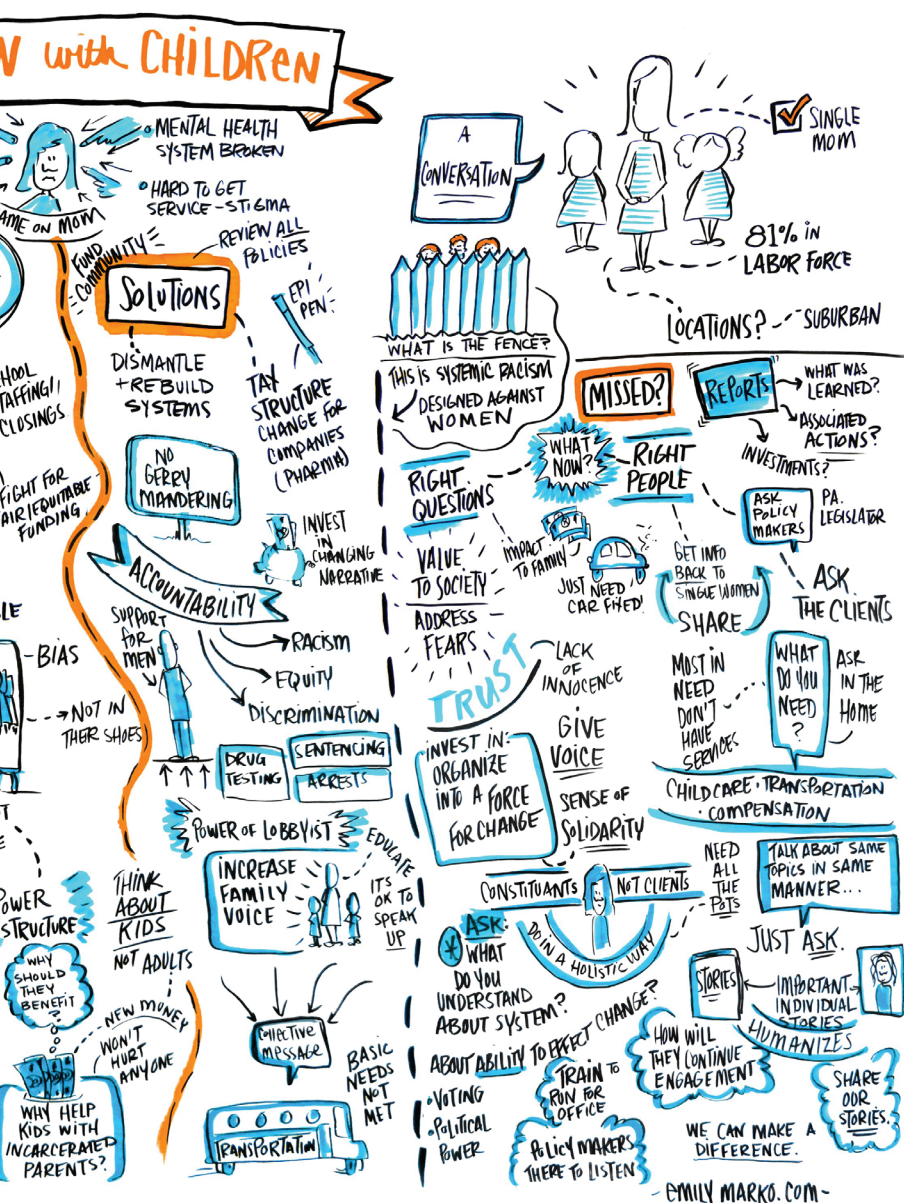 with CHiLDREN
MENTAL HEALTH
SYSTEM BROKEN
HARD TO GET
SERVICE - STIGMA
AME ON MOM
FUND
COMMUNITY
REVIEW ALL
POLICIES
SOLUTIONS
EPI
PEN
DISMANTLE
+ REBUILD
SYSTEMS
TAX
STRUCTURE
CHANGE FOR
COMPANIES
(PHARMA)
HOOL
TAFFING/
CLOSINGS
FIGHT FOR
AIR/EQUITABLE
FUNDING
NO
GERRY
MANDERING
INVEST
IN
CHANGING
NARRATIVE
ACCOUNTABILITY
SUPPORT
FOR
MEN
RACISM
EQUITY
DISCRIMINATION
- BIAS
NOT IN
THEIR SHOES
DRUG
TESTING
SENTENCING
ARRESTS
POWER OF LOBBYIST
EDUCATE
INCREASE
FAMILY
VOICE
IT'S
OK TO
SPEAK
UP
OWER
STRUCTURE
THINK
ABOUT
KIDS
NOT ADULTS
WHY
SHOULD
THEY
BENEFIT
NEW MONEY
WON'T
HURT
ANYONE
WHY HELP
KIDS WITH
INCARCERATED
PARENTS?
COLLECTIVE
MESSAGE
BASIC
NEEDS
NOT
MET
TRANSPORTATION
A
CONVERSATION
SINGLE
MOM
81% IN
LABOR FORCE
LOCATIONS?
SUBURBAN
WHAT IS THE FENCE?
THIS IS SYSTEMIC RACISM
DESIGNED AGAINST
WOMEN
MISSED?
REPORTS
WHAT WAS
LEARNED?
ASSOCIATED
ACTIONS?
INVESTMENTS?
WHAT
NOW?
RIGHT
QUESTIONS
RIGHT
PEOPLE
ASK
POLICY
MAKERS
PA.
LEGISLATOR
VALUE
TO SOCIETY
ADDRESS
FEARS
IMPACT
TO FAMILY
JUST NEED
CAR FIXED!
GET INFO
BACK TO
SINGLE WOMEN
SHARE
ASK
THE CLIENTS
TRUST
LACK
OF
INNOCENCE
MOST IN
NEED
DON'T
HAVE
SERVICES
WHAT
DO YOU
NEED
?
ASK
IN THE
HOME
INVEST IN:
ORGANIZE
INTO A FORCE
FOR CHANGE
GIVE
VOICE
SENSE OF
SOLIDARITY
CHILDCARE · TRANSPORTATION
· COMPENSATION
CONSTITUANTS
NOT CLIENTS
DO IN A HOLISTIC WAY
NEED
ALL
THE
POTS
TALK ABOUT SAME
TOPICS IN SAME
MANNER...
JUST ASK.
ASK:
WHAT
DO YOU
UNDERSTAND
ABOUT SYSTEM?
STORIES
IMPORTANT
INDIVIDUAL
STORIES
HUMANIZES
ABOUT ABILITY TO EFFECT CHANGE?
• VOTING
• POLITICAL
POWER
TRAIN TO
RUN FOR
OFFICE
POLICY MAKERS
THERE TO LISTEN
HOW WILL
THEY CONTINUE
ENGAGEMENT
SHARE
OUR
STORIES.
WE CAN MAKE A
DIFFERENCE.
- EMILY MARKO.COM -